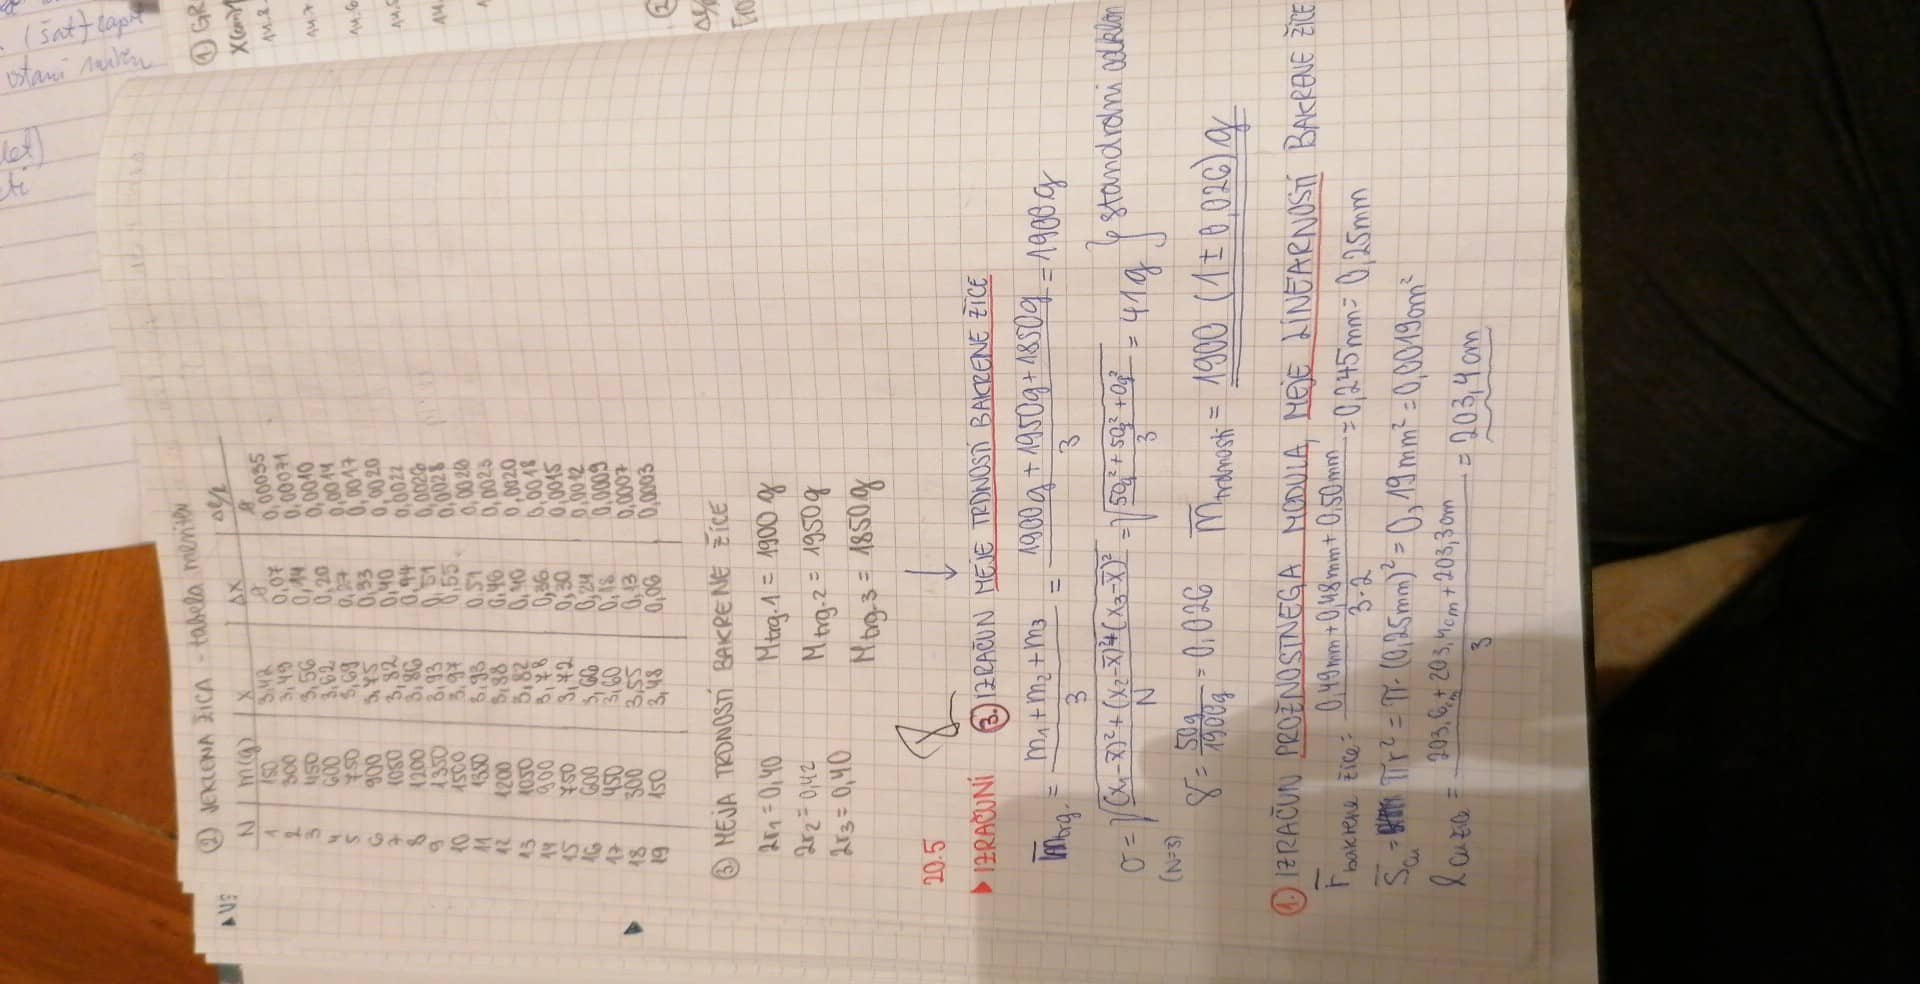 ② JEKLENA ŽICA - tabela meritev
N m(g) X Δx Δl/l
1 150 3,42 0 0
2 300 3,49 0,07 0,00035
3 450 3,56 0,14 0,00071
4 600 3,62 0,20 0,0010
5 750 3,69 0,27 0,0014
6 900 3,75 0,33 0,0017
7 1050 3,82 0,40 0,0020
8 1200 3,86 0,44 0,0022
9 1350 3,93 0,51 0,0026
10 1500 3,97 0,55 0,0028
11 1350 3,93 0,51 0,0026
12 1200 3,88 0,46 0,0023
13 1050 3,82 0,40 0,0020
14 900 3,78 0,36 0,0018
15 750 3,72 0,30 0,0015
16 600 3,66 0,24 0,0012
17 450 3,60 0,18 0,0009
18 300 3,55 0,13 0,0007
19 150 3,48 0,06 0,0003
③ MEJA TRDNOSTI BAKRENE ŽICE
2r₁ = 0,40 m trg.1 = 1900 g
2r₂ = 0,42 m trg.2 = 1950 g
2r₃ = 0,40 m trg.3 = 1850 g
20.5
IZRAČUNI ③. IZRAČUN MEJE TRDNOSTI BAKRENE ŽICE
m̅trg. = (m₁+m₂+m₃)/3 = (1900g + 1950g + 1850g)/3 = 1900g
σ = √((x₁-x̅)²+(x₂-x̅)²+(x₃-x̅)²)/N = √(50g²+50g²+0g²)/3 = 41g } standardni odklon
(N=3)
δ = 50g/1900g = 0,026 m̅trdnosti = 1900 (1 ± 0,026) g
①. IZRAČUN PROŽNOSTNEGA MODULA, MEJE LINEARNOSTI BAKRENE ŽICE
r̅ bakrene žice = (0,49mm+0,48mm+0,50mm)/3·2 = 0,245mm = 0,25mm
S̅cu = πr² = π·(0,25mm)² = 0,19mm² = 0,0019cm²
l cu žice = (203,6cm + 203,4cm + 203,3cm)/3 = 203,4cm